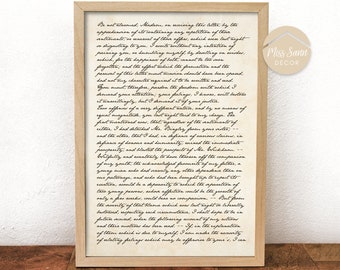 Be not alarmed, Madam, on receiving this letter, by the
apprehension of its containing any repetition of those
sentiments, or renewal of those offers, which were last night
so disgusting to you. I write without any intention of
paining you, or humbling myself, by dwelling on wishes,
which, for the happiness of both, cannot be too soon
forgotten; and the effort which the formation and the
perusal of this letter must occasion should have been spared,
had not my character required it to be written and read.
You must, therefore, pardon the freedom with which I
demand your attention; your feelings, I know, will bestow
it unwillingly, but I demand it of your justice.
Two offenses of a very different nature, and by no means of
equal magnitude, you last night laid to my charge. The
first mentioned was, that, regardless of the sentiments of
either, I had detached Mr. Bingley from your sister; --
and the other, that I had, in defiance of various claims, in
defiance of honour and humanity, ruined the immediate
prosperity, and blasted the prospects of Mr. Wickham. --
Wilfully and wantonly to have thrown off the companion
of my youth, the acknowledged favourite of my father, a
young man who had scarcely any other dependence than on
our patronage, and who had been brought up to expect its
exertion, would be a depravity to which the separation of
two young persons, whose affection could be the growth of
only a few weeks, could bear no comparison. -- But from the
severity of that blame which was last night so liberally
bestowed, respecting each circumstance, I shall hope to be in
future secured, when the following account of my actions
and their motives has been read. -- If, in the explanation
of them which is due to myself, I am under the necessity
of relating feelings which may be offensive to your's, I can
Miss Swan
DECOR